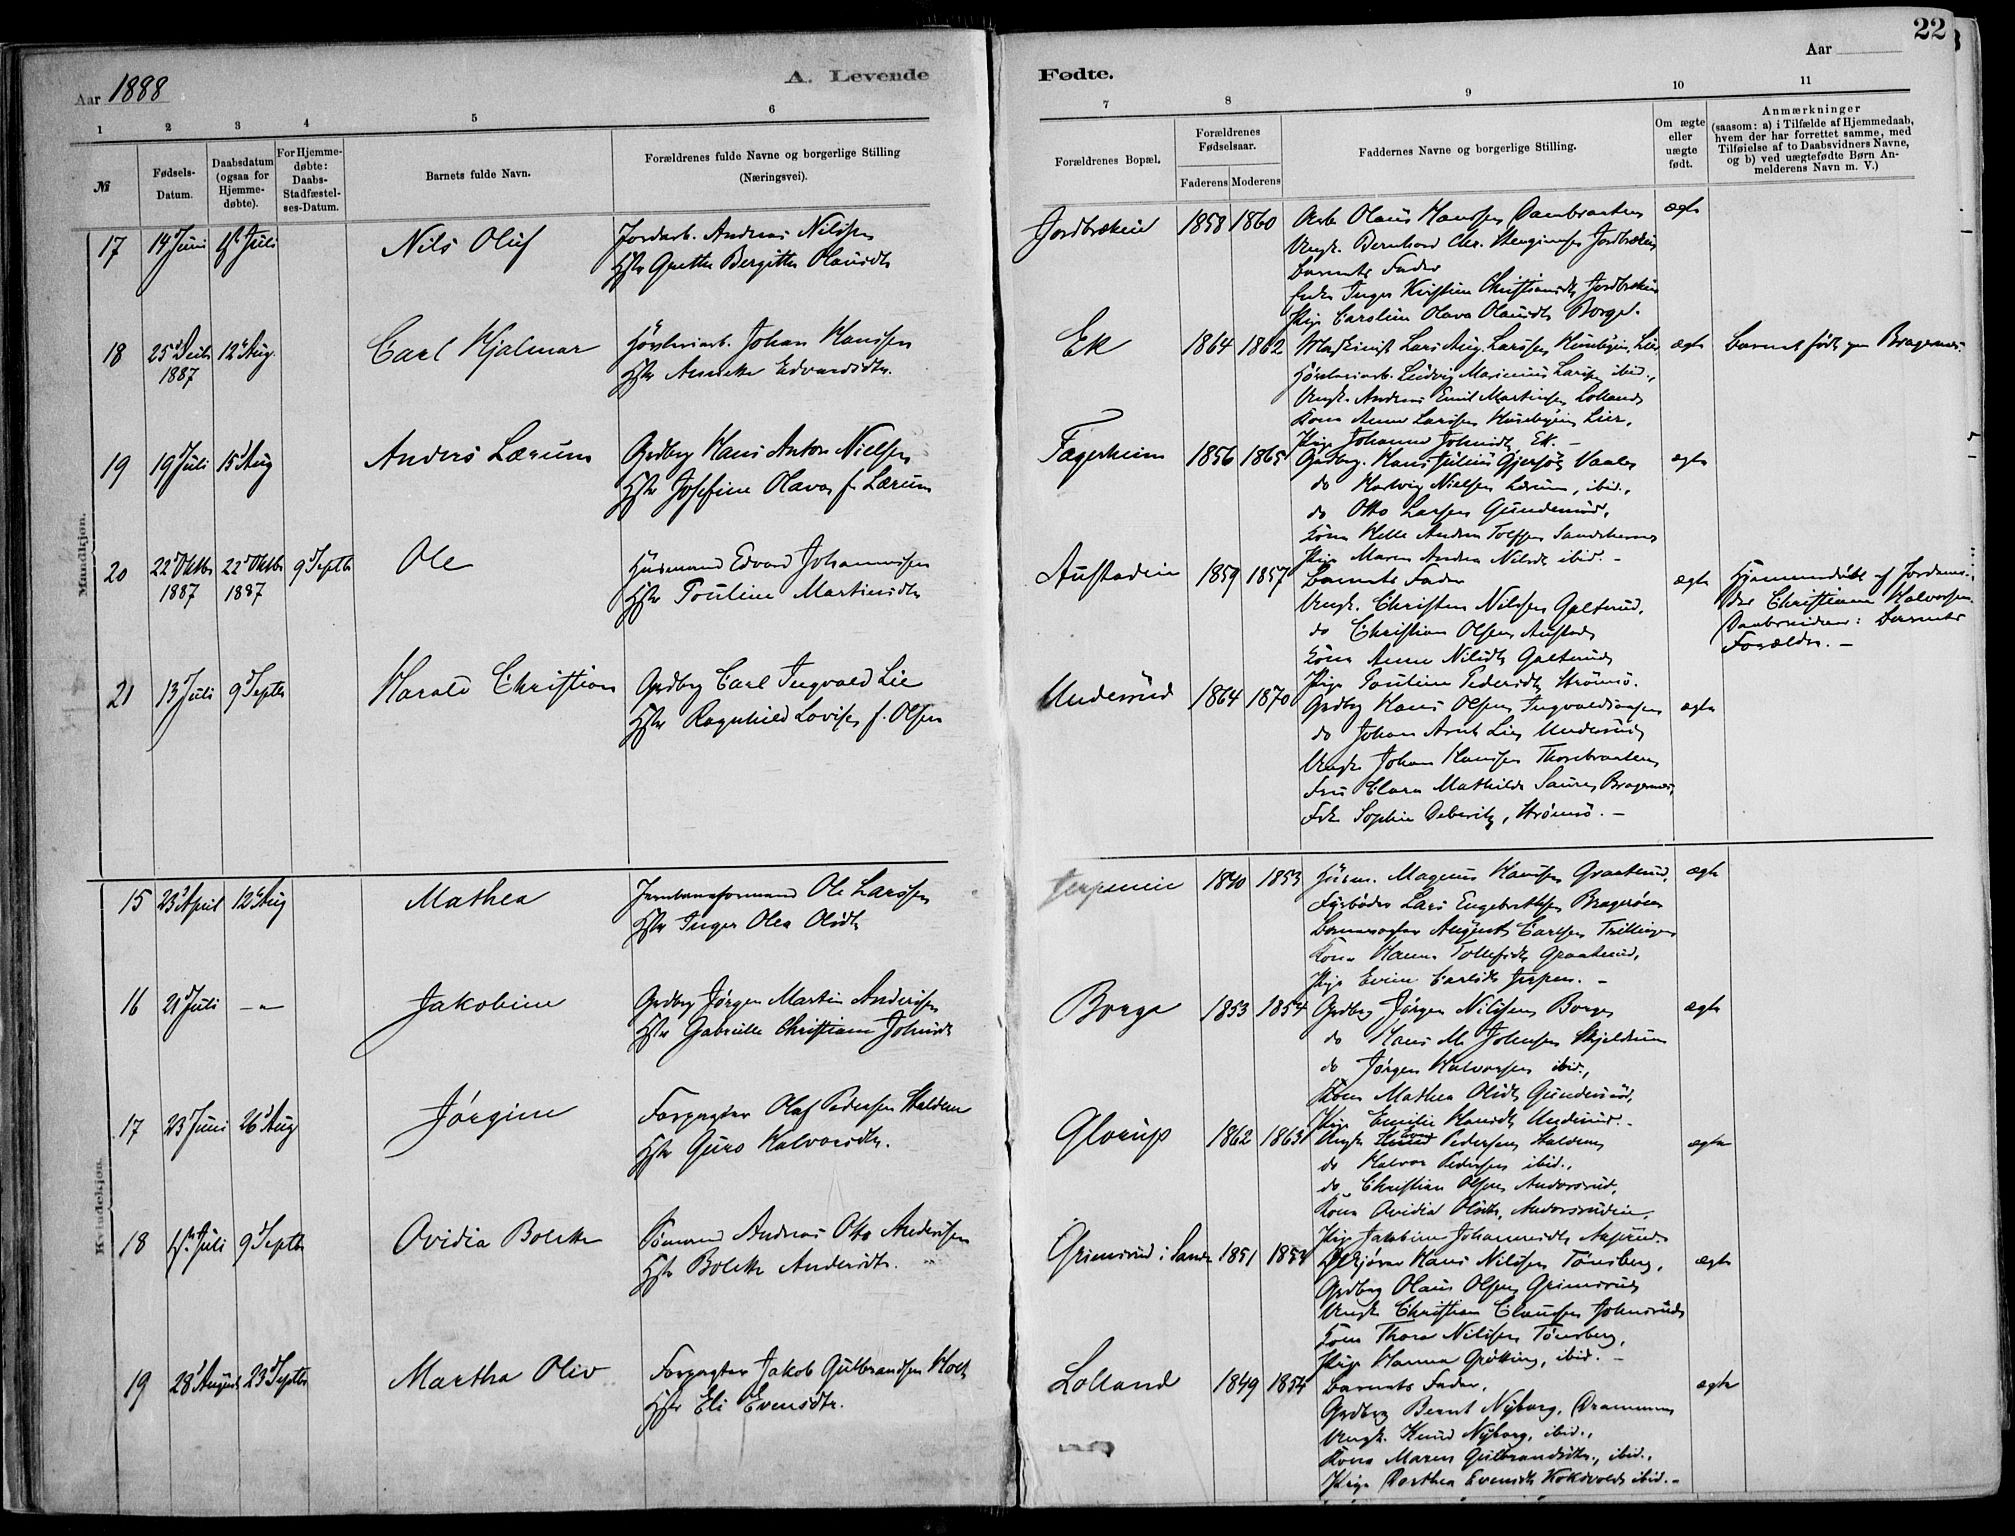 Aar 1888
A. Levende
Fødte.
Aar
22
1 2 3 4 5 6 7 8 9 10 11
№
Fødsels-
Datum.
Daabsdatum
(ogsaa for
Hjemme-
døbte).
For Hjemme-
døbte:
Daabs-
Stadfæstel-
ses-Datum.
Barnets fulde Navn.
Forældrenes fulde Navne og borgerlige Stilling
(Næringsvei).
Forældrenes Bopæl.
Forældrenes
Fødselsaar.
Faderens Moderens
Faddernes Navne og borgerlige Stilling.
Om ægte
eller
uægte
født.
Anmærkninger
(saasom: a) i Tilfælde af Hjemmedaab,
hvem der har forrettet samme, med
Tilføielse af to Daabsvidners Navne,
og b) ved uægtefødte Børn An-
melderens Navn m. V.)
Mandkjøn.
17 14 Juni 1 Juli
Nils Oluf
Jordarb. Andreas Nilssen
Hstr Grethe Bergitte Olausdtr
Jordbrækken 1858 1860
Arb. Olaus Hanssen
Ungk. Bernhard Chr. Jordbrækken
Barnets Fader
Enke Inger Kirstine Christiansdtr Jordbrækken
Pige Caroline Olava Olausdtr Borge.
ægte
18 25 Decbr 12 Aug.
1887
Carl Hjalmar
Johan Hanssen
Hstr Annette Edvardsdtr.
Ek 1864 1862
Maskinist Lars Aug. Larssen Huseby Lier
Ludvig Marinius Larssen ibid.,
Ungk. Andreas Emil Martinsen Lolland
Kone Anne Larssen Huseby Lier,
Pige Johanne Johnsdtr Ek. –
ægte
Barnet født paa Bragernæs.
19 19 Juli 15 Aug
Anders Lærum
Grdbrg Hans Anton Nielsen
Hstr Josefine Olava f. Lærum
Fagerheim 1856 1865
Grdbrg. Hans Julius Gjersøe Vaale
do Hartvig Nielsen Lærum, ibid.,
do Otto Larsen Gunderud,
Kone Helle Andrea
Pige Maren Andrea Nilsdtr ibid. –
ægte
20 22 Oktbr 22 Oktbr 9 Septbr
1887 1887
Ole
Husmand Edvard Johannessen
Hstr Pouline Martinsdtr
Austadeie 1859 1857
Barnets Fader
Ungk. Christen Nilssen Galterud,
do Christian Olsen Austad
Kone Anne Nilsdtr Galterud
Pige Pouline Pedersdtr Strømsø.
ægte
Hjemmedøbt af Jordemo-
der Christiane Halvorsen.
Daabsvidner: Barnets
Forældre. –
21 13 Juli 9 Septbr
Harald Christian
Grdbrg Carl Ingvald Lie
Hstr Ragnhild Lovise f. Olsen
Underud 1864 1870
Grdbrg Hans Olsen
do Johan Arnt Lie Underud
Ungk. Johan Hanssen Thorebraaten
Fru Clara Mathilde Bragernæs,
Frk. Sophie Deberitz, Strømsø. –
ægte
Kvindekjøn.
15 23 April 12 Aug
Mathea
Jernbaneformand Ole Larssen
Hstr Inger Olea Olsdtr
Jerpeneie 1840 1853
Husm. Magnus Hanssen Graaterud,
Fyrbøder Lars Engebretsen Bragerøen
August Carlsen
Kone Hanne Tollefsdtr Graaterud,
Pige Evine Carlsdtr Jerpen. –
ægte
16 21 Juli –"–
Jakobine
Grdbrg Jørgen Martin Anderssen
Hstr Gabrielle Christiane Johnsdtr
Borge 1853 1854
Grdbrg Jørgen Nilssen Borge
do Hans M. Johnsen Skjeldrum
do Jørgen Halvorsen ibid.,
Kone Mathea Olsdtr Gunderud,
Pige Emilie Hansdtr Underud. –
ægte
17 23 Juni 26 Aug
Jørgine
Forpagter Olaf Pedersen Stalden
Hstr Guro Halvorsdtr.
Glorup 1862 1863
Ungk. Even Pedersen Stalden
do Halvor Pedersen ibid.,
do Christian Olsen Andorsrud,
Kone Ovidia Olsdtr, Andorsrudeie.
Pige Jakobine Johannesdtr
ægte
18 1 Juli 9 Septbr
Ovidia Bolette
Sømand Andreas Otto Anderssen
Hstr Bolette Andersdtr.
Grimsrud i Sande 1851 1854
Hans Nilssen Tønsberg,
Grdbrg Olaus Olsen Grimsrud
Ungk. Christian Claussen Johnsrud
Kone Thora Nilssen Tønsberg,
Pige Hanna Grøtting, ibid. –
ægte
19 28 August 23 Septbr
Martha Oliv
Forpagter Jakob Gulbrandsen Holt
Hstr Eli Evensdtr.
Lolland 1849 1854
Barnets Fader,
Grdbrg Bernt Nyborg, Drammen
Ungk. Knud Nyborg, ibid.,
Kone Maren Gulbrandsdtr., ibid.,
Pige Dorthea Evensdtr Kokvold ibid. –
ægte